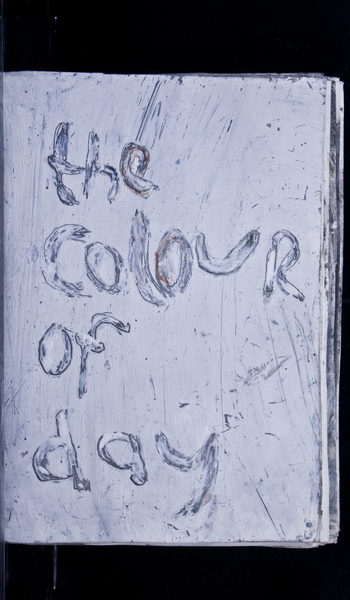 the
ColouR
of
day